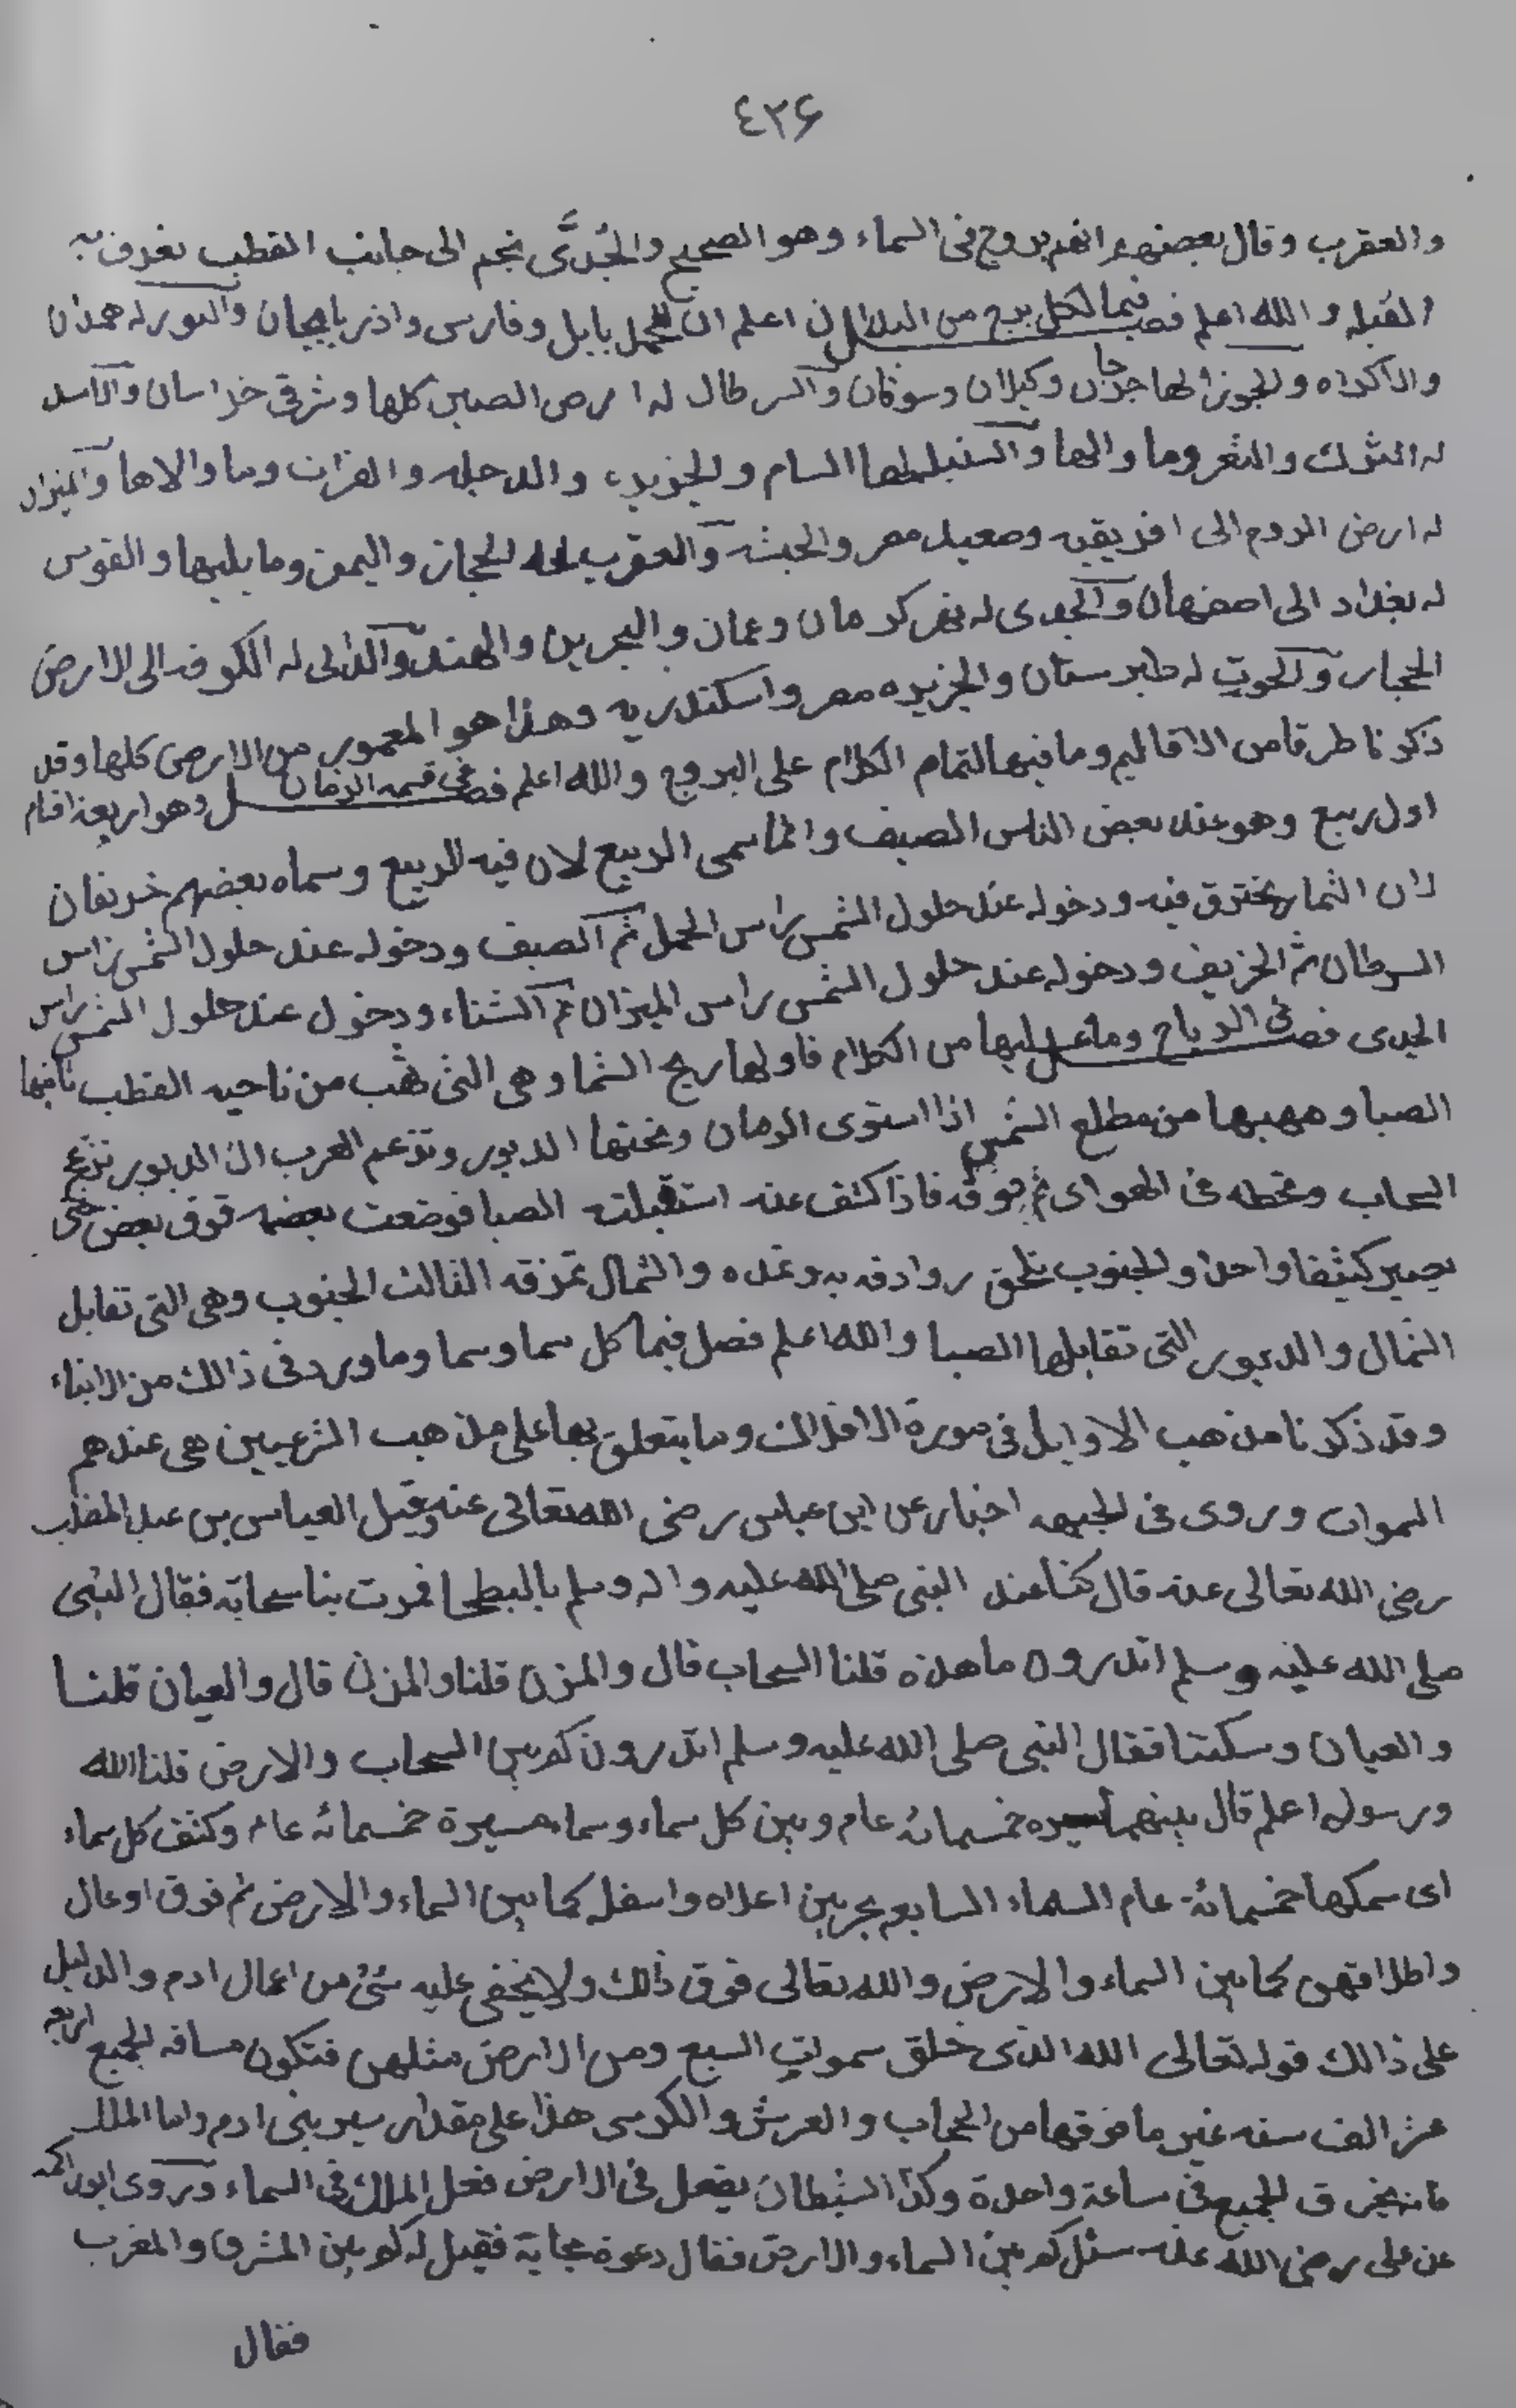 ٤٢۶
والعقرب وقال بعضهم انهم بروج فى السماء وهو الصحيح والجُدَىَّ نجم الى جانب القطب تعرف به
القبله والله اعلم فصل فيما لكل برج من البلدان اعلم ان للحمل بابل وفارس واذربايجان والثور له همدان
والاكراد والجوزا لها جرجان وكيلان وسوقان والسرطان له ارض الصين كلها وشرقى خراسان والاسد
له الترك والثغر وما والها والسنبله لها الشام والجزيره والدجله والفرات وما والاها والميزان
له ارض الروم الى افريقيه وصعيد مصر والحبشه والعقرب له الحجاز واليمن وما يليها والقوس
له بغداد الى اصفهان والجدى له نهر كرمان وعمان والبحرين والهند والدلى له الكوفه الى الارض
الحجاز والحوت له طبرستان والجزيره مصر واسكندريه وهذا هو المعمور من الارض كلها وقد
ذكرنا طرقا من الاقاليم وما فيها لتمام الكلام على البروج والله اعلم فصل فى قسمه الزمان وهو اربعة اقسام
اول ربيع وهو عند بعض الناس الصيف وانما سمى الربيع لان فيه الربيع وسماه بعضهم خريفان
لان الثمار تخترق فيه ودخوله عند حلول الشمس براس الحمل ثم الصيف ودخوله عند حلول الشمس براس
السرطان ثم الخريف ودخوله عند حلول الشمس براس الميزان ثم الشتاء ودخول عند حلول الشمس براس
الجدى فصل فى الرياح وما عليها من الكلام فاولها ريح الشما وهى التى تهب من ناحيه القطب ثانيها
الصبا ومهبها من مطلع الشمس اذا استوى الزمان وتحتها الدبور وتزعم العرب ان الدبور تزعج
السحاب وتحطه فى الهواى ثم تسوقه فاذا كشف عنه استقبلته الصبا فوضعت بعضه فوق بعض حتى
يصير كيثفا واحدا والجنوب تلحق روادفه به وتمده والشمال تمزقه الثالث الجنوب وهى التى تقابل
الشمال والدبور التى تقابلها الصبا والله اعلم فصل فيما كل سما وسما وما ورد فى ذالك من الانباء
وقد ذكرنا مذهب الاوايل فى صورة الافلاك وما يتعلق بها على مذهب الشرعيين هى عندهم
السموات وروى فى الجبهه اخبار عن ابن عباس رضى الله تعالى عنه وقيل العباس بن عبد المطلب
رضى الله تعالى عنه قال كنا عند النبى صلى الله عليه واله وسلم بالبطحا فمرت بنا سحابة فقال النبى
صلى الله عليه وسلم اتدرون ما هذه قلنا السحاب قال والمزن قلنا والمزن قال والعيان قلنا
والعيان وسكتنا فقال النبى صلى الله عليه وسلم اتدرون كم بين السحاب والارض قلنا الله
ورسوله اعلم قال بينهما مسيره خمسمائه عام وبين كل سماء وسماء مسيرة خمسمائه عام وكثف كل سماء
اى سمكها خمسمائة عام السماء السابعه بحر بين اعلاه واسفله كما بين السماء والارض ثم فوق اوعال
واطلافهن كما بين السماء والارض والله تعالى فوق ذلك ولا يخفى عليه شئ من اعمال ادم والدليل
على ذالك قوله تعالى الله الذى خلق سموات السبع ومن الارض مثلهن فتكون مسافه الجميع اربعه
عشر الف سنه غير ما فوقها من الحجاب والعرش والكرسى هذا على مقدار سير بنى ادم واما الملك
فانه يخرق الجميع فى ساعة واحدة وكذا الشيطان يفعل فى الارض فعل الملك فى السماء وروى ابو
عن على رضى الله عنه سئل كم بين السماء والارض فقال دعوة مجابة فقيل له كم بين المشرق والمغرب
فقال